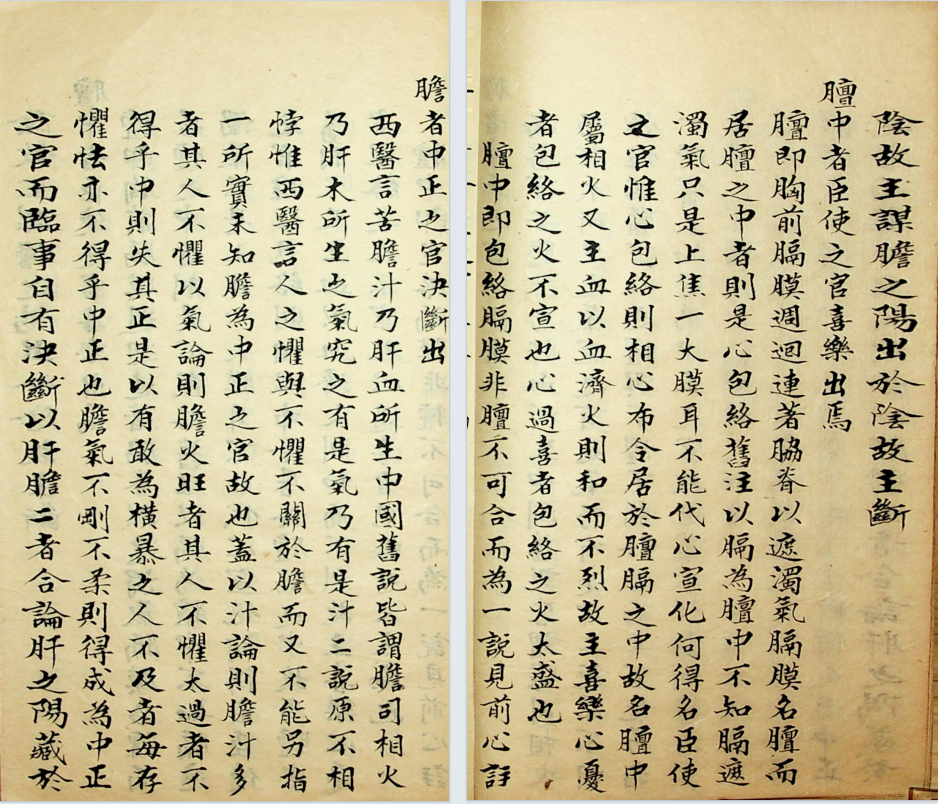 膽者中正之官決斷出
西醫言苦膽汁乃肝血所生中國舊說皆謂膽司相火
乃肝木所生之氣究之有是氣乃有是汁二說原不相
悖惟西醫言人之懼與不懼不關於膽而又不能另指
一所實未知膽為中正之官故也蓋以汁論則膽汁多
者其人不懼以氣論則膽火旺者其人不懼太過者不
得乎中則失其正是以有敢為橫暴之人不及者每存
懼怯亦不得乎中正也膽氣不剛不柔則得成為中正
之官而臨事自有決斷以肝膽二者合論肝之陽藏於
陰故主謀膽之陽出於陰故主斷
膻中者臣使之官喜樂出焉
膻即胸前膈膜週迴連著脇脊以遮濁氣膈膜名膻而
居膻之中者則是心包絡舊注以膈為膻中不知膈遮
濁氣只是上焦一大膜耳不能代心宣化何得名臣使
之官惟心包絡則相心布令居於膻膈之中故名膻中
屬相火又主血以血濟火則和而不烈故主喜樂心憂
者包絡之火不宣也心過喜者包絡之火太盛也
膻中即包絡膈膜非膻不可合而為一說見前心註